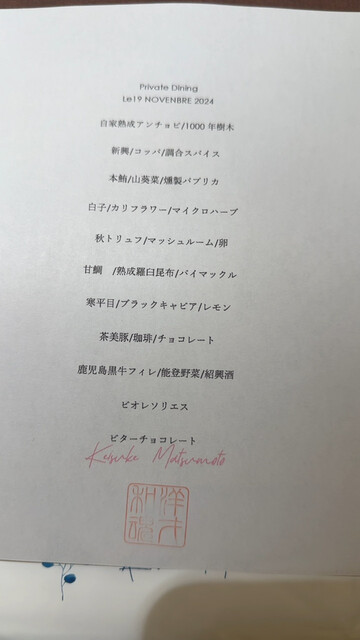 Private Dining
Le19 NOVENBRE 2024
自家熟成アンチョビ/1000年樹木
新興/コッパ/調合スパイス
本鮪/山葵菜/燻製パプリカ
白子/カリフラワー/マイクロハーブ
秋トリュフ/マッシュルーム/卵
甘鯛 /熟成羅臼昆布/パイマックル
寒平目/ブラックキャビア/レモン
茶美豚/珈琲/チョコレート
鹿児島黒牛フィレ/能登野菜/紹興酒
ビオレソリエス
ビターチョコレート
Keisuke Matsumoto
洋才
和魂